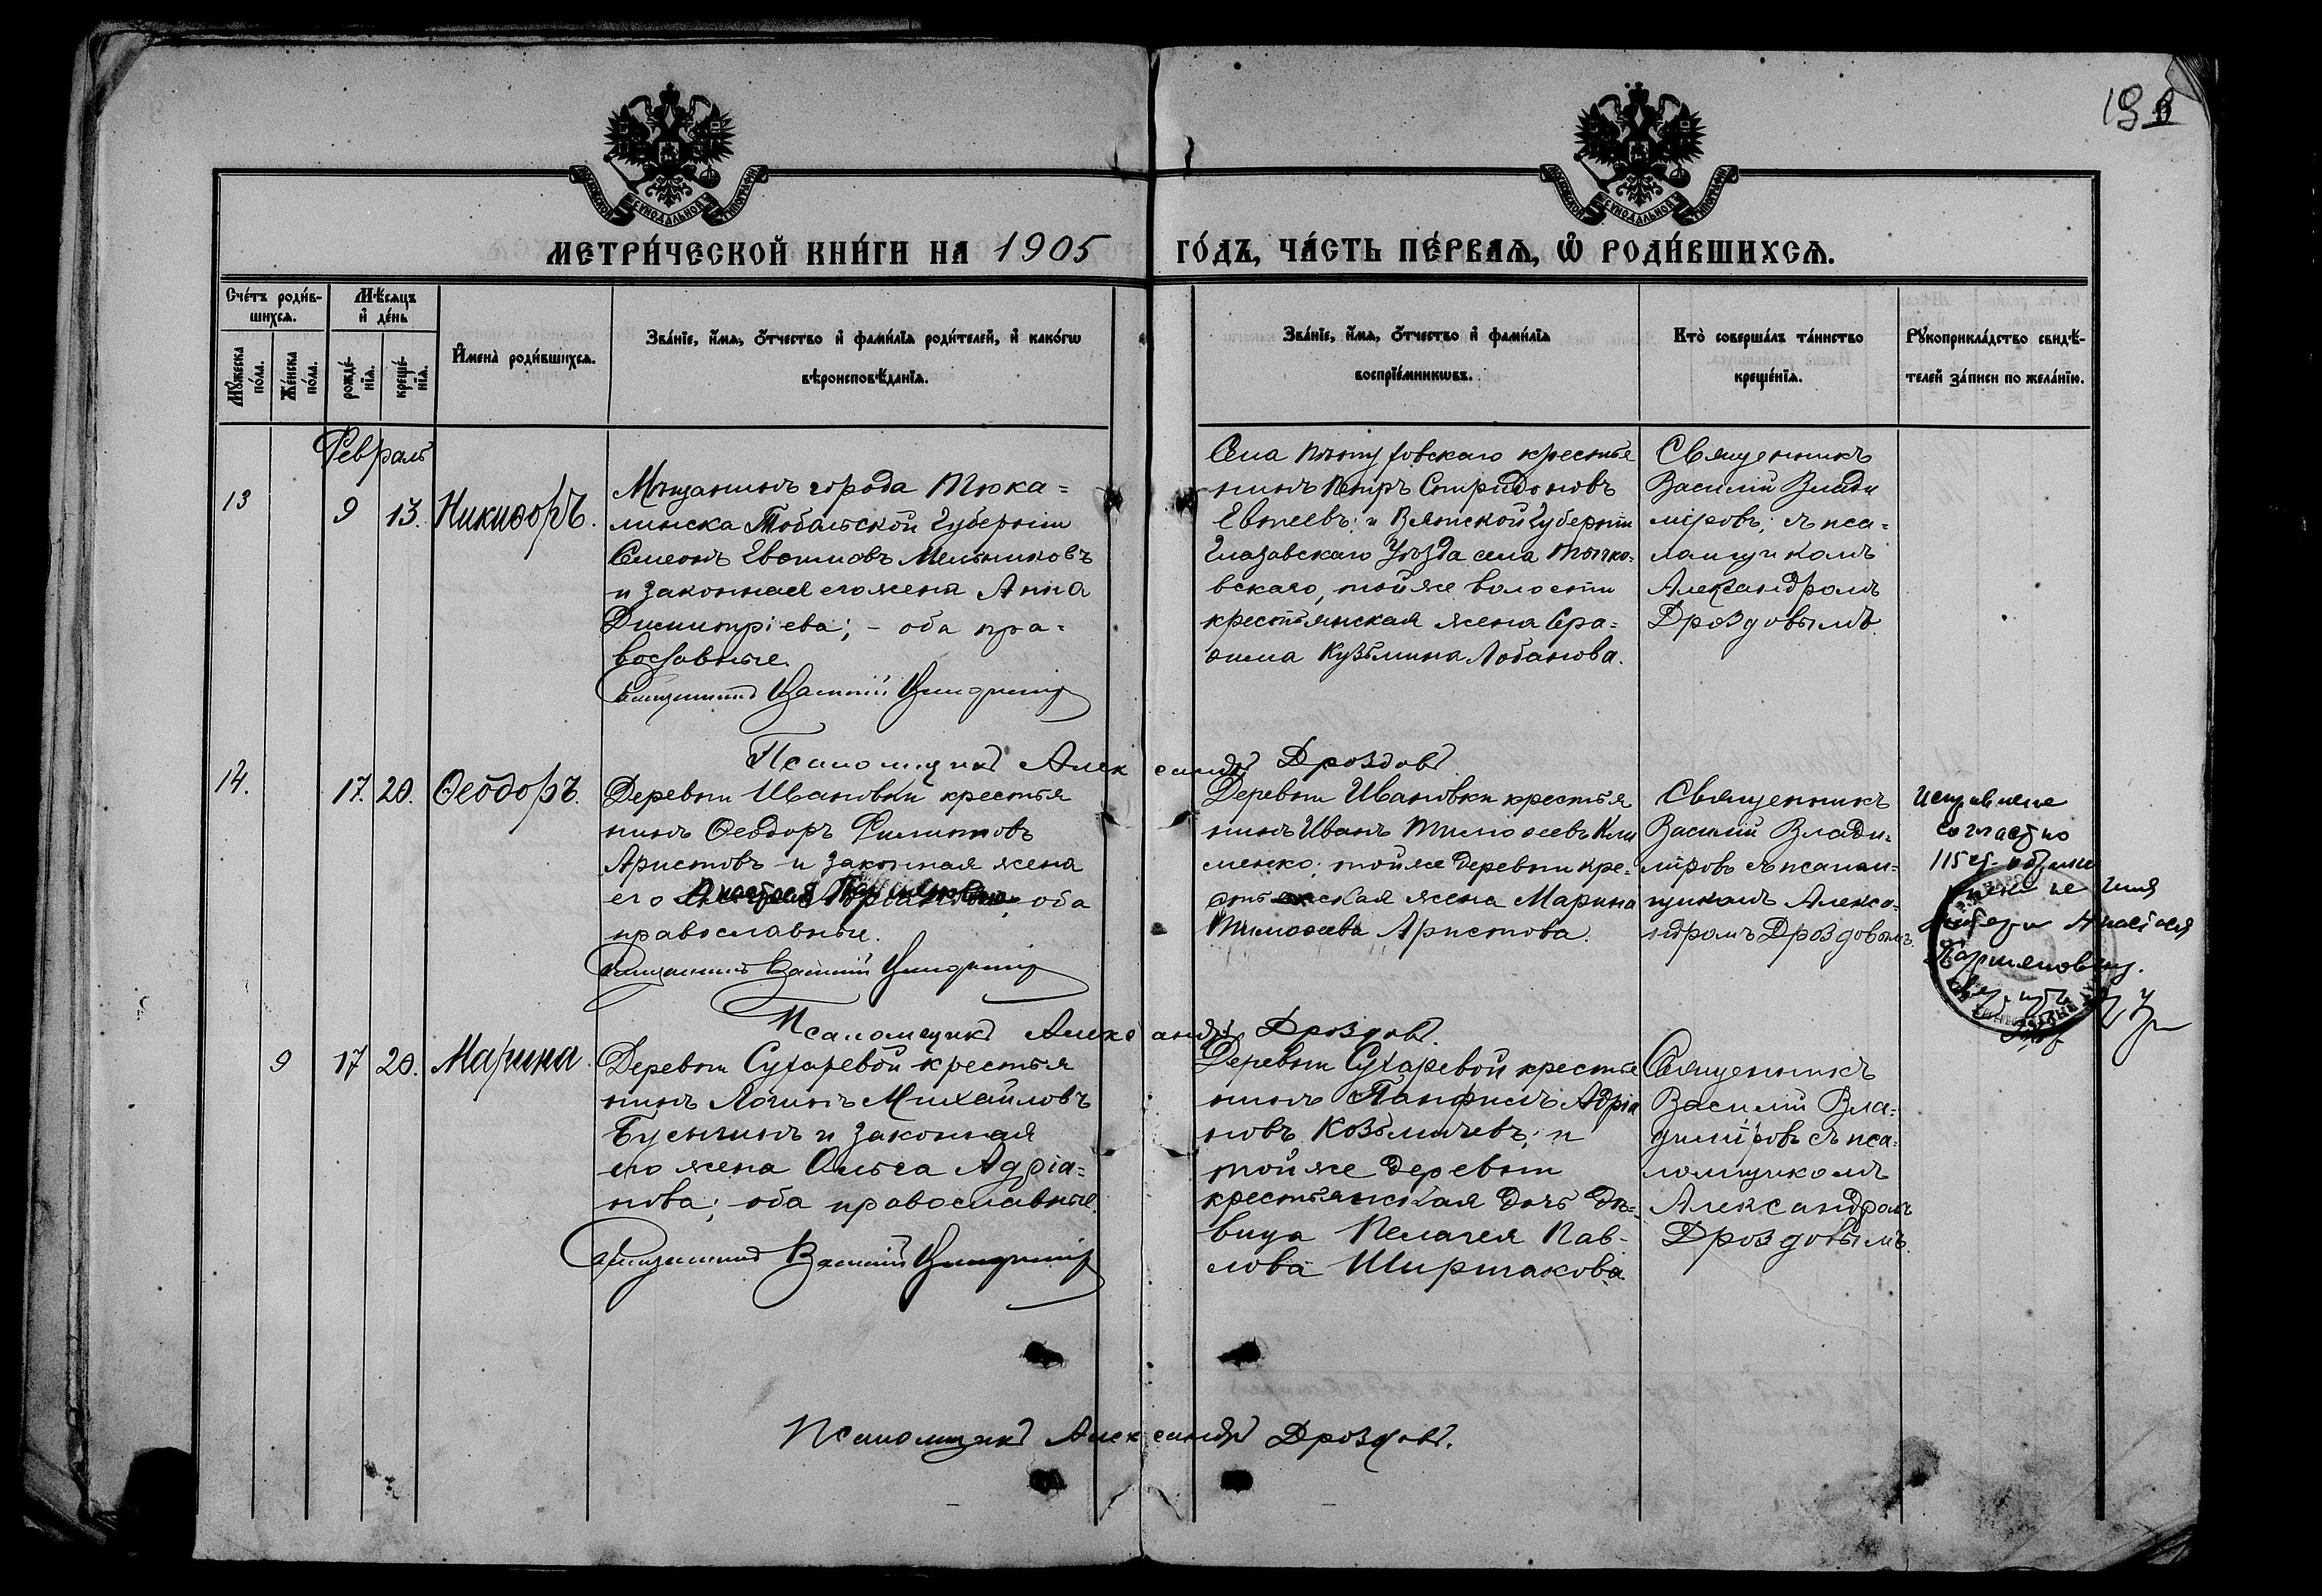 МЕТРИ́ЧЕСКОЙ КНИ́ГИ НА 1905 ГО́ДЪ, ЧА́СТЬ ПЕ́РВАѦ, Ѽ РОДИ́ВШИХСѦ.
Сче́тъ роди́в-
шихсѧ.
Мѣ́сѧцъ
и҆ де́нь
Мꙋ́жеска
по́ла.
Же́нска
по́ла.
рожде́-
нїѧ.
креще́-
нїѧ.
И҆мена̀ роди́вшихсѧ.
Зва́нїе, и҆́мѧ, ѻ҆́тчество и҆ фами́лїѧ роди́телей, и҆ како́гѡ
вѣроисповѣ́данїѧ.
Зва́нїе, и҆́мѧ, ѻ҆́тчество и҆ фами́лїѧ
воспрїе́мникѡвъ.
Кто̀ соверша́лъ та́инство
креще́нїѧ.
Рꙋкоприкла́дство свидѣ́-
телей за́писи по жела́нїю.
Февраль
13
9
13.
Никиѳоръ.
Мѣщанинъ города Тюка=
линска Тобальской Губерніи
Симеонъ Евѳимовъ Мельниковъ
и законная его жена Анна
Димитріева; - оба пра=
вославные.
Священникъ Василій Владиміровъ
Села крестья
нинъ Петръ Спиридоновъ
Евсеевъ; и Вятской Губерніи
Глазавскаго Уѣзда села
вскаго, той же волости
крестьянская жена Сера=
ѳима Кузьмина Лобанова.
Священникъ
Василій Влади
міровъ; съ пса=
ломщикомъ
Александромъ
Дроздовымъ.
Псаломщикъ Александръ Дроздовъ
14.
17.
20.
Ѳеодоръ.
Деревни Ивановки крестья
нинъ Ѳеодоръ Филиповъ
Аристовъ и законная жена
его оба
православные.
Священникъ Василій Владиміровъ
Деревни Ивановки крестья
нинъ Иванъ Тимоѳеевъ Кли
менко; той же деревни кре=
стьянская жена Марина
Тимоѳеева Аристова.
Священникъ
Василій Влади=
міровъ съ псалом=
щикомъ Алекса=
ндромъ Дроздовымъ.
Исправленіе
согласно
115
имя
матери Анастасія
Паршяновну.
Псаломщикъ Александръ Дроздовъ.
9
17
20.
Марина
Деревни Сухаревой крестья
нинъ Логинъ Михайловъ
Бусыгинъ и законная
его жена Ольга Адріа=
нова; оба православные.
Священникъ Василій Владиміровъ
Деревни Сухаревой крестья
нинъ Панфилъ Адріа
новъ Козьмичевъ; и
той же деревни
крестьянская дочь дѣ=
вица Пелагея Пав-
лова Ширшакова
Священникъ
Василій Вла=
диміровъ съ пса=
ломщикомъ
Александромъ
Дроздовымъ.
Псаломщикъ Александръ Дроздовъ.